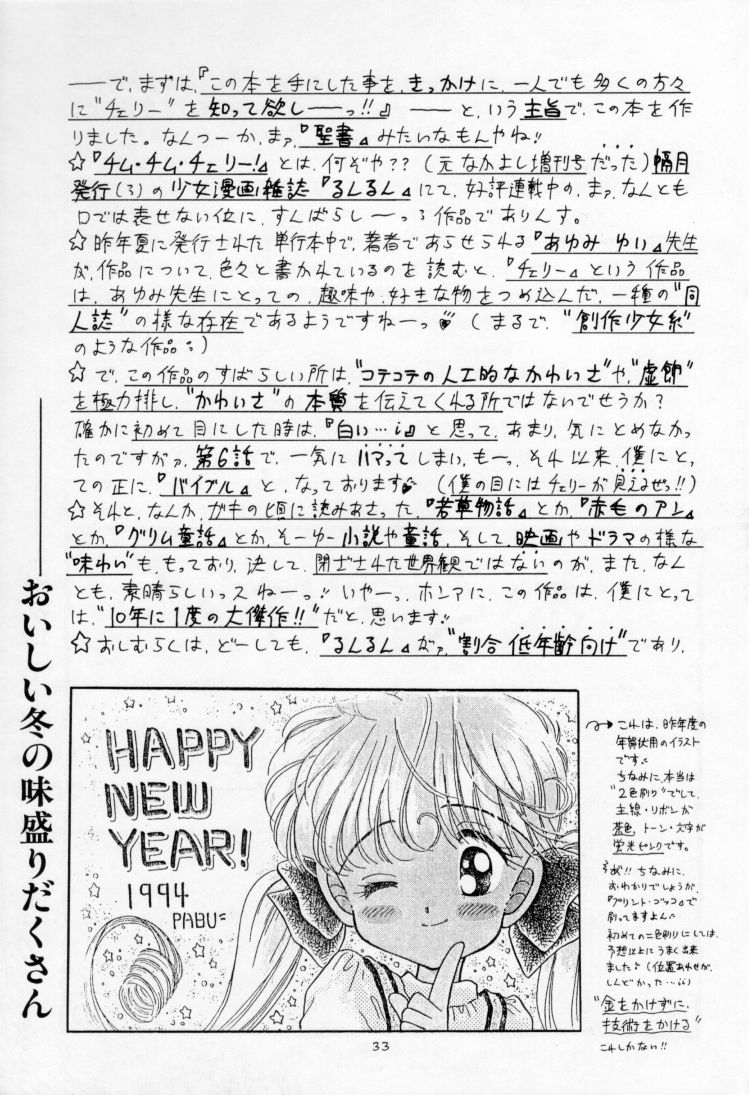 ――で、まずは、『この本を手にした事を、きっかけに、一人でも多くの方々
に"チェリー"を知って欲し――っ!!』 ――と、いう主旨で、この本を作
りました。なんつーか、まァ、『聖書』みたいなもんやね!!
☆『チム・チム・チェリー!』とは、何ぞや?? (元なかよし増刊号だった)隔月
発行(3)の少女漫画雑誌『るんるん』にて、好評連載中の、まァ、なんとも
口では表せない位に、すんばらし――っ3作品でありんす。
☆昨年夏に発行された単行本中で、著者であらせられる『あゆみ ゆい』先生
が、作品について、色々と書かれているのを読むと、『チェリー』という作品
は、あゆみ先生にとっての、趣味や、好きな物をつめ込んだ、一種の"同
人誌"の様な存在であるようですねーっ (まるで、"創作少女系"
のような作品)
☆で、この作品のすばらしい所は、"コテコテの人工的なかわいさ"や、"虚飾"
を極力排し、"かわいさ"の本質を伝えてくれる所ではないでせうか?
確かに初めて目にした時は、『白い…』と思って、あまり、気にとめなかっ
たのですがァ、第6話で、一気にハマってしまい、もーっ、それ以来、僕にとっ
ての正に、『バイブル』と、なっております (僕の目にはチェリーが見えるぜっ!!)
☆それと、なんか、ガキの頃に読みあさった、『若草物語』とか、『赤毛のアン』
とか、『グリム童話』とか、そーゆー小説や童話、そして、映画やドラマの様な
"味わい"も、もっており、決して、閉ざされた世界観ではないのが、また、なん
とも、素晴らしいっスねーっ!! いやーっ、ホンマに、この作品は、僕にとって
は、"10年に1度の大傑作!!"だと、思います!!
☆おしむらくは、どーしても、『るんるん』がァ、"割合低年齢向け"であり、
おいしい冬の味盛りだくさん
HAPPY
NEW
YEAR!
1994
PABU
これは、昨年度の
年賀状用のイラスト
です。
ちなみに、本当は
"2色刷り"でして、
主線・リボンが
茶色、トーン・文字が
蛍光ピンクです。
あ!! ちなみに、
おわかりでしょうが、
『プリント・ゴッコ』で
刷ってますよん
初めての二色刷りにしては、
予想以上にうまく出来
ました♪(位置あわせが、
しんどかった…)
"金をかけずに、
技術をかける"
これしかない!!
33